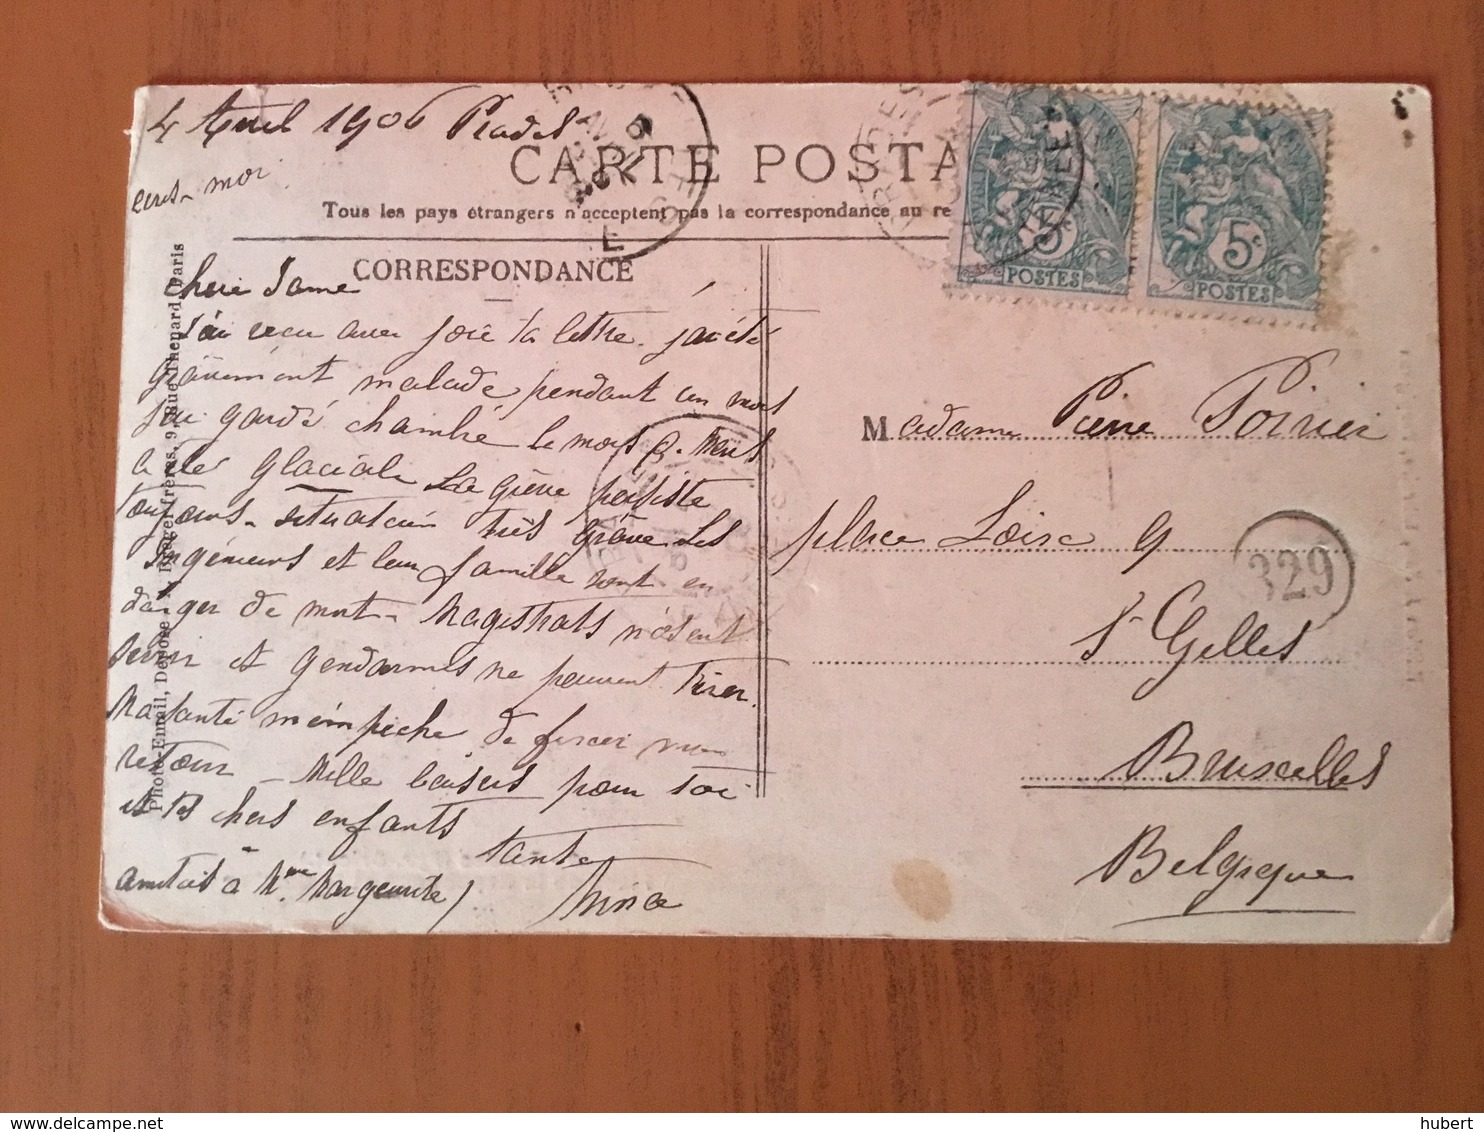 4 Avril 1906 Prades
ecris-moi
CARTE POSTA
Tous les pays étrangers n'acceptent pas la correspondance au re
CORRESPONDANCE
Photo-Email, Déposé - A. Breger frères, 9, Rue Thénard, Paris
chère
J'ai reçu avec joie ta lettre. j'ai été
gravement malade pendant un mois
j'ai gardé chambre le mois de Mars
a été glacial La grève persiste
toujours - situation très grave Les
Ingénieurs et leur famille sont en
danger de mort - Magistrats n'osent
sévir et gendarmes ne peuvent tirer.
Ma santé m'empêche de forcer mon
retour - Mille baisers pour toi
et tes chers enfants
tante
amitiés à Mme Marguerite
5c
POSTES
5c
POSTES
Madame Pierre Poirier
place Loix 9
329
St Gilles
Bruxelles
Belgique
hubert